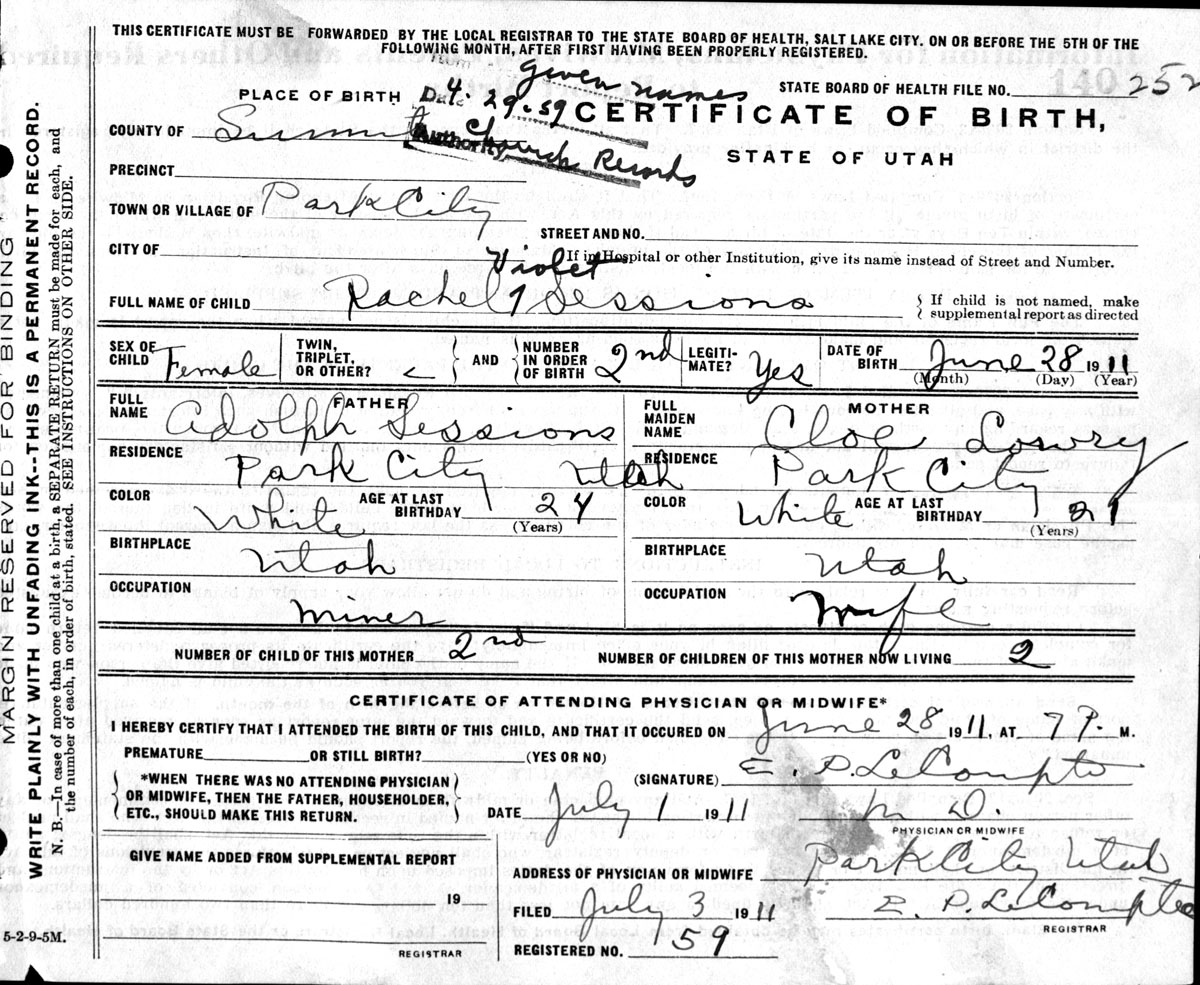 THIS CERTIFICATE MUST BE FORWARDED BY THE LOCAL REGISTRAR TO THE STATE BOARD OF HEALTH, SALT LAKE CITY, ON OR BEFORE THE 5TH OF THE
FOLLOWING MONTH, AFTER FIRST HAVING BEEN PROPERLY REGISTERED.
given names
STATE BOARD OF HEALTH FILE NO. 252
PLACE OF BIRTH Date 4-29-59 CERTIFICATE OF BIRTH,
COUNTY OF Summit Authority Church Records
STATE OF UTAH
PRECINCT
TOWN OR VILLAGE OF Park City
STREET AND NO.
CITY OF If in Hospital or other Institution, give its name instead of Street and Number.
Violet
FULL NAME OF CHILD Rachel Sessions { If child is not named, make
supplemental report as directed
SEX OF CHILD Female TWIN, TRIPLET, OR OTHER? { AND } NUMBER IN ORDER OF BIRTH 2nd LEGITI-MATE? Yes DATE OF BIRTH June 28 1911
(Month) (Day) (Year)
FATHER
FULL NAME Adolph Sessions
MOTHER
FULL MAIDEN NAME Cloe Lowry
RESIDENCE Park City Utah
RESIDENCE Park City
COLOR White AGE AT LAST BIRTHDAY 24 (Years)
COLOR White AGE AT LAST BIRTHDAY 21 (Years)
BIRTHPLACE Utah
BIRTHPLACE Utah
OCCUPATION Miner
OCCUPATION Wife
NUMBER OF CHILD OF THIS MOTHER 2nd NUMBER OF CHILDREN OF THIS MOTHER NOW LIVING 2
CERTIFICATE OF ATTENDING PHYSICIAN OR MIDWIFE*
I HEREBY CERTIFY THAT I ATTENDED THE BIRTH OF THIS CHILD, AND THAT IT OCCURED ON June 28 1911, AT 7 P. M.
PREMATURE OR STILL BIRTH? (YES OR NO)
*WHEN THERE WAS NO ATTENDING PHYSICIAN
OR MIDWIFE, THEN THE FATHER, HOUSEHOLDER,
ETC., SHOULD MAKE THIS RETURN.
(SIGNATURE) E. P. LeCompte
DATE July 1 1911 M. D.
PHYSICIAN OR MIDWIFE
GIVE NAME ADDED FROM SUPPLEMENTAL REPORT
19
REGISTRAR
ADDRESS OF PHYSICIAN OR MIDWIFE Park City Utah
FILED July 3 1911 E. P. LeCompte
REGISTRAR
REGISTERED NO. 59
5-2-9-5M.
MARGIN RESERVED FOR BINDING
WRITE PLAINLY WITH UNFADING INK--THIS IS A PERMANENT RECORD.
N. B.--In case of more than one child at a birth, a SEPARATE RETURN must be made for each, and
the number of each, in order of birth, stated. SEE INSTRUCTIONS ON OTHER SIDE.